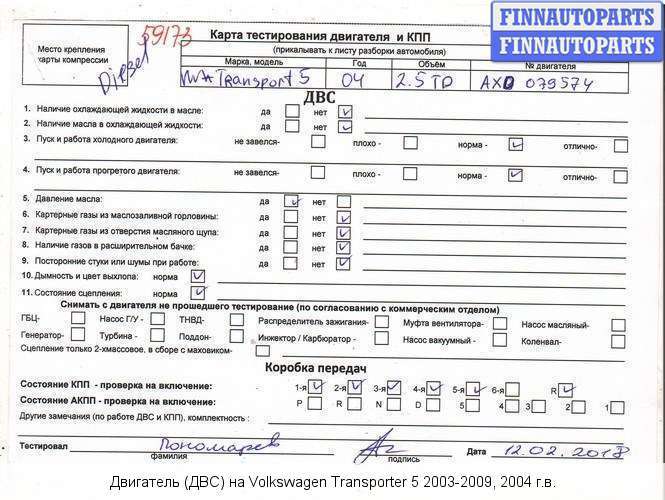 FINNAUTOPARTS
FINNAUTOPARTS
59173
Diesel
Место крепления
карты компрессии
Карта тестирования двигателя и КПП
(прикалывать к листу разборки автомобиля)
Марка, модель Год Объём № двигателя
Transport 5 04 2.5 TD AXD 079574
ДВС
1. Наличие охлаждающей жидкости в масле: да нет
2. Наличие масла в охлаждающей жидкости: да нет
3. Пуск и работа холодного двигателя: не завелся- плохо - норма - отлично-
4. Пуск и работа прогретого двигателя: не завелся- плохо - норма - отлично-
5. Давление масла: да нет
6. Картерные газы из маслозаливной горловины: да нет
7. Картерные газы из отверстия масляного щупа: да нет
8. Наличие газов в расширительном бачке: да нет
9. Посторонние стуки или шумы при работе: да нет
10. Дымность и цвет выхлопа: норма
11. Состояние сцепления: норма
Снимать с двигателя не прошедшего тестирование (по согласованию с коммерческим отделом)
ГБЦ- Насос Г/У - ТНВД- Распределитель зажигания- Муфта вентилятора- Насос масляный-
Генератор- Турбина - Поддон- Инжектор / Карбюратор - Насос вакуумный - Коленвал-
Сцепление только 2-хмассовое, в сборе с маховиком-
Коробка передач
Состояние КПП - проверка на включение: 1-я 2-я 3-я 4-я 5-я 6-я R
Состояние АКПП - проверка на включение: P R N D 5 4 3 2 1
Другие замечания (по работе ДВС и КПП), комплектность :
Тестировал Пономарев Дата 12.02.2018
фамилия подпись
Двигатель (ДВС) на Volkswagen Transporter 5 2003-2009, 2004 г.в.